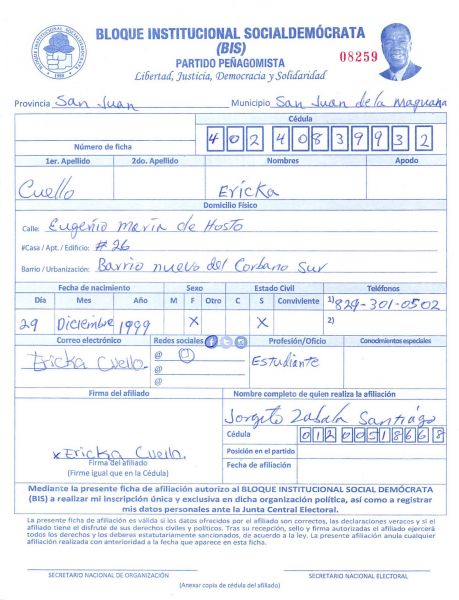 BLOQUE INSTITUCIONAL SOCIALDEMÓCRATA
BLOQUE INSTITUCIONAL SOCIALDEMÓCRATA
(BIS)
PARTIDO PEÑAGOMISTA
08259
Libertad, Justicia, Democracia y Solidaridad
Provincia San Juan Municipio San Juan de la Maguana
Cédula
Número de ficha 402 4083993 2
1er. Apellido 2do. Apellido Nombres Apodo
Cuello Ericka
Domicilio Físico
Calle: Eugenio maría de Hosto
#Casa / Apt. / Edificio: # 26
Barrio / Urbanización: Barrio nuevo del Corbano Sur
Fecha de nacimiento Sexo Estado Civil Teléfonos
Día Mes Año M F Otro C S Conviviente 1) 829-301-0502
29 Diciembre 1999 X X 2)
Correo electrónico Redes sociales Profesión/Oficio Conocimientos especiales
Ericka Cuello. @ Estudiante
@
@
Firma del afiliado Nombre completo de quien realiza la afiliación
Jorgito Zabala Santiágo
Cédula 01200518668
x Ericka Cuello. Posición en el partido
Firma del afiliado Fecha de afiliación
(Firme igual que en la Cédula)
Mediante la presente ficha de afiliación autorizo al BLOQUE INSTITUCIONAL SOCIAL DEMÓCRATA
(BIS) a realizar mi inscripción única y exclusiva en dicha organización política, así como a registrar
mis datos personales ante la Junta Central Electoral.
La presente ficha de afiliación es válida si los datos ofrecidos por el afiliado son correctos, las declaraciones veraces y si el
afiliado tiene el disfrute de sus derechos civiles y políticos. Tras su recepción, sello y firma autorizadas el afiliado ejercerá
todos los derechos y los deberes estatutariamente sancionados, de acuerdo a la ley. La presente afiliación anula cualquier
afiliación realizada con anterioridad a la fecha que aparece en esta ficha.
SECRETARIO NACIONAL DE ORGANIZACIÓN SECRETARIO NACIONAL ELECTORAL
(Anexar copia de cédula del afiliado)